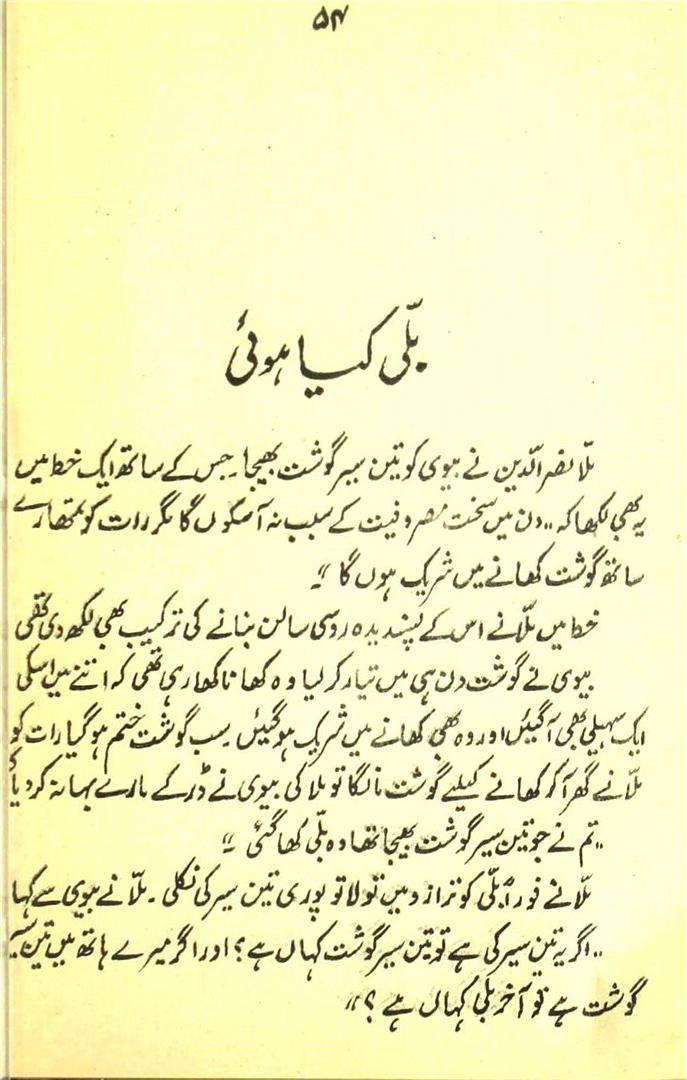 ۵۴
بلّی کیا ہوئی
ملّا نصرالدّین نے بیوی کو تین سیر گوشت بھیجا۔ جس کے ساتھ ایک خط میں
یہ بھی لکھا کہ ،،دن میں سخت مصروفیت کے سبب نہ آسکوں گا مگر رات کو تمھارے
ساتھ گوشت کھانے میں شریک ہوں گا"۔
خط میں ملّا نے اس کے پسندیدہ روسی سالن بنانے کی ترکیب بھی لکھ دی تھی
بیوی نے گوشت دن ہی میں تیار کر لیا وہ کھانا کھا رہی تھی کہ اتنے میں اسکی
ایک سہیلی بھی آگیئں اور وہ بھی کھانے میں شریک ہوگیئں۔ سب گوشت ختم ہوگیا رات کو
ملّا نے گھر آکر کھانے کیلئے گوشت مانگا تو ملا کی بیوی نے ڈر کے مارے بہانہ کر دیا کہ
،،تم نے جو تین سیر گوشت بھیجا تھا وہ بلّی کھا گئی"۔
ملّا نے فوراً بلّی کو ترازو میں تولا تو پوری تین سیر کی نکلی۔ ملّا نے بیوی سے کہا
،،اگر یہ تین سیر کی ہے تو تین سیر گوشت کہاں ہے؟ اور اگر میرے ہاتھ میں تین سیر
گوشت ہے تو آخر بلی کہاں ہے؟"